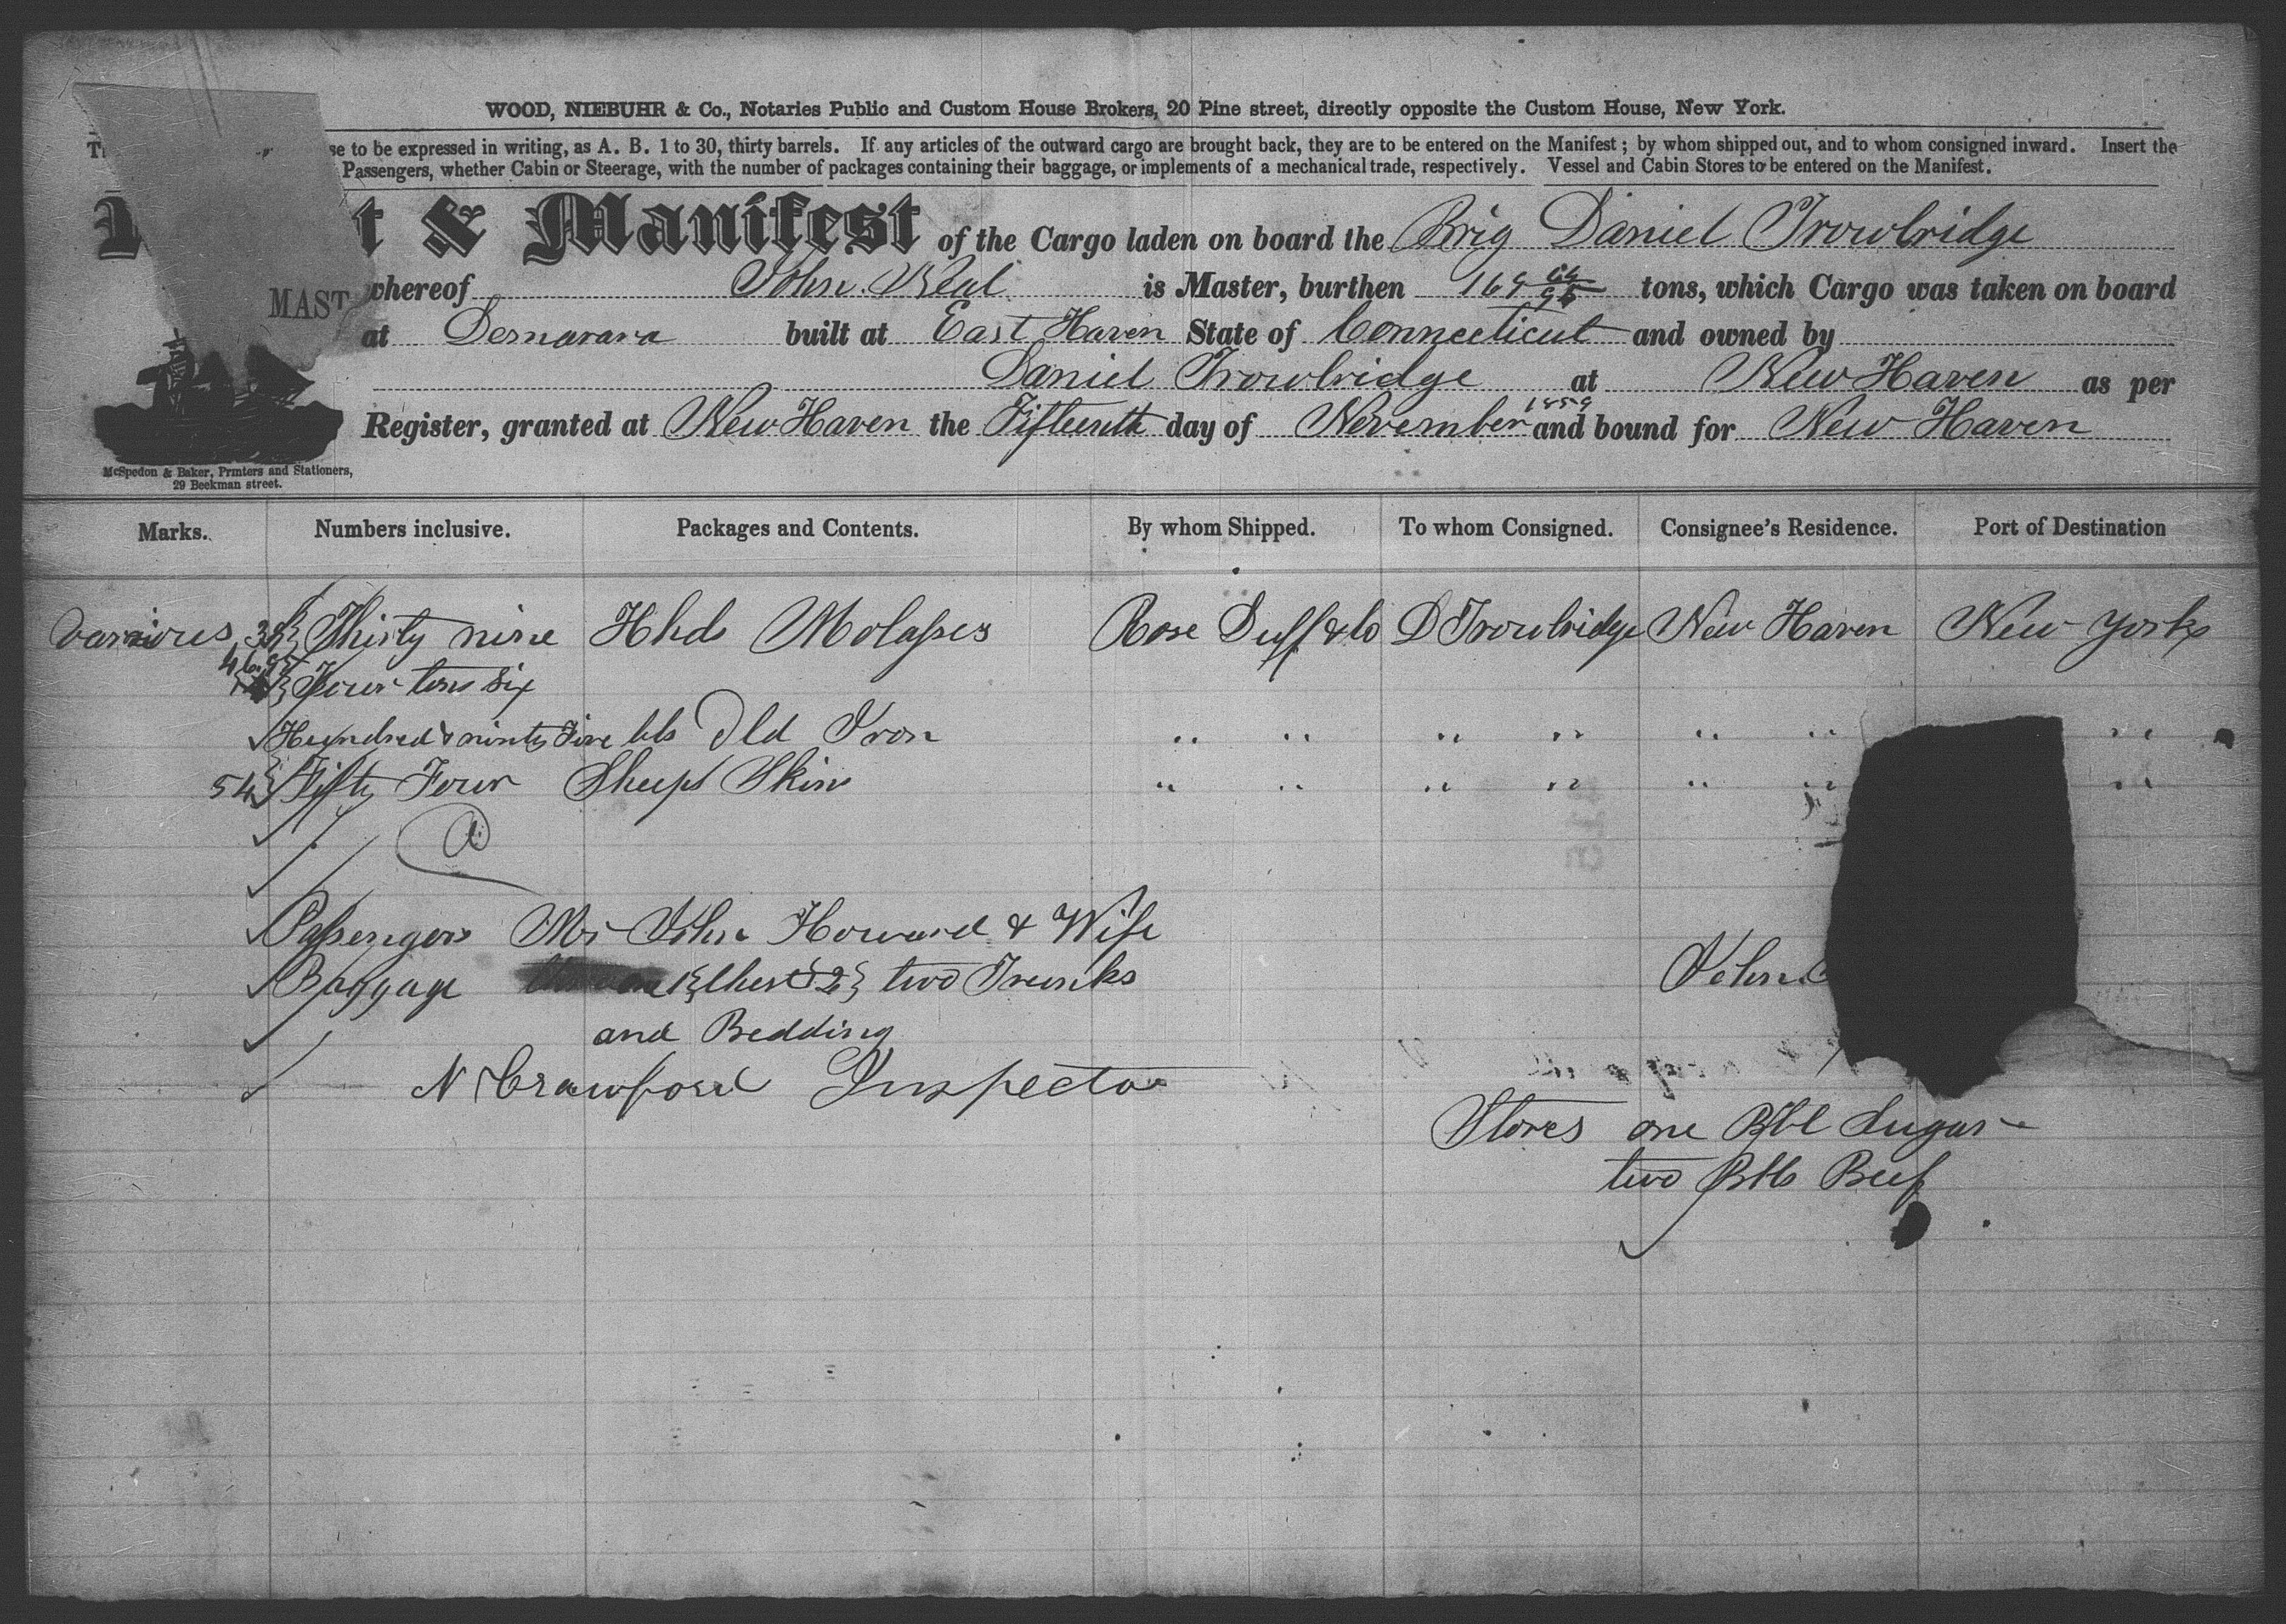 WOOD, NIEBUHR & Co., Notaries Public and Custom House Brokers, 20 Pine street, directly opposite the Custom House, New York.
se to be expressed in writing, as A. B. 1 to 30, thirty barrels. If any articles of the outward cargo are brought back, they are to be entered on the Manifest; by whom shipped out, and to whom consigned inward. Insert the
Passengers, whether Cabin or Steerage, with the number of packages containing their baggage, or implements of a mechanical trade, respectively. Vessel and Cabin Stores to be entered on the Manifest.
t & Manifest of the Cargo laden on board the Brig Daniel Trowbridge
MAST
whereof John is Master, burthen 169 tons, which Cargo was taken on board
at Demarara built at East Haven State of Connecticut and owned by
Daniel Trowbridge at New Haven as per
Register, granted at New Haven the Fifteenth day of November 1859 and bound for New Haven
McSpedon & Baker, Printers and Stationers,
29 Beekman street.
Marks. Numbers inclusive. Packages and Contents. By whom Shipped. To whom Consigned. Consignee's Residence. Port of Destination
Various 39 Thirty nine Hhds Molasses Rose Duff & Co D Trowbridge New Haven New York
Four tons six
Hundred & ninty Five lbs Old Iron " " " " " " " "
54 Fifty Four Sheeps Skins " " " " " " " "
Passengers Mr John Howard & Wife
Baggage 1 Chest 2 two Trunks
John
and Bedding
N Crawford Inspector
Stores one Bbl Sugar
two Bbls Beef